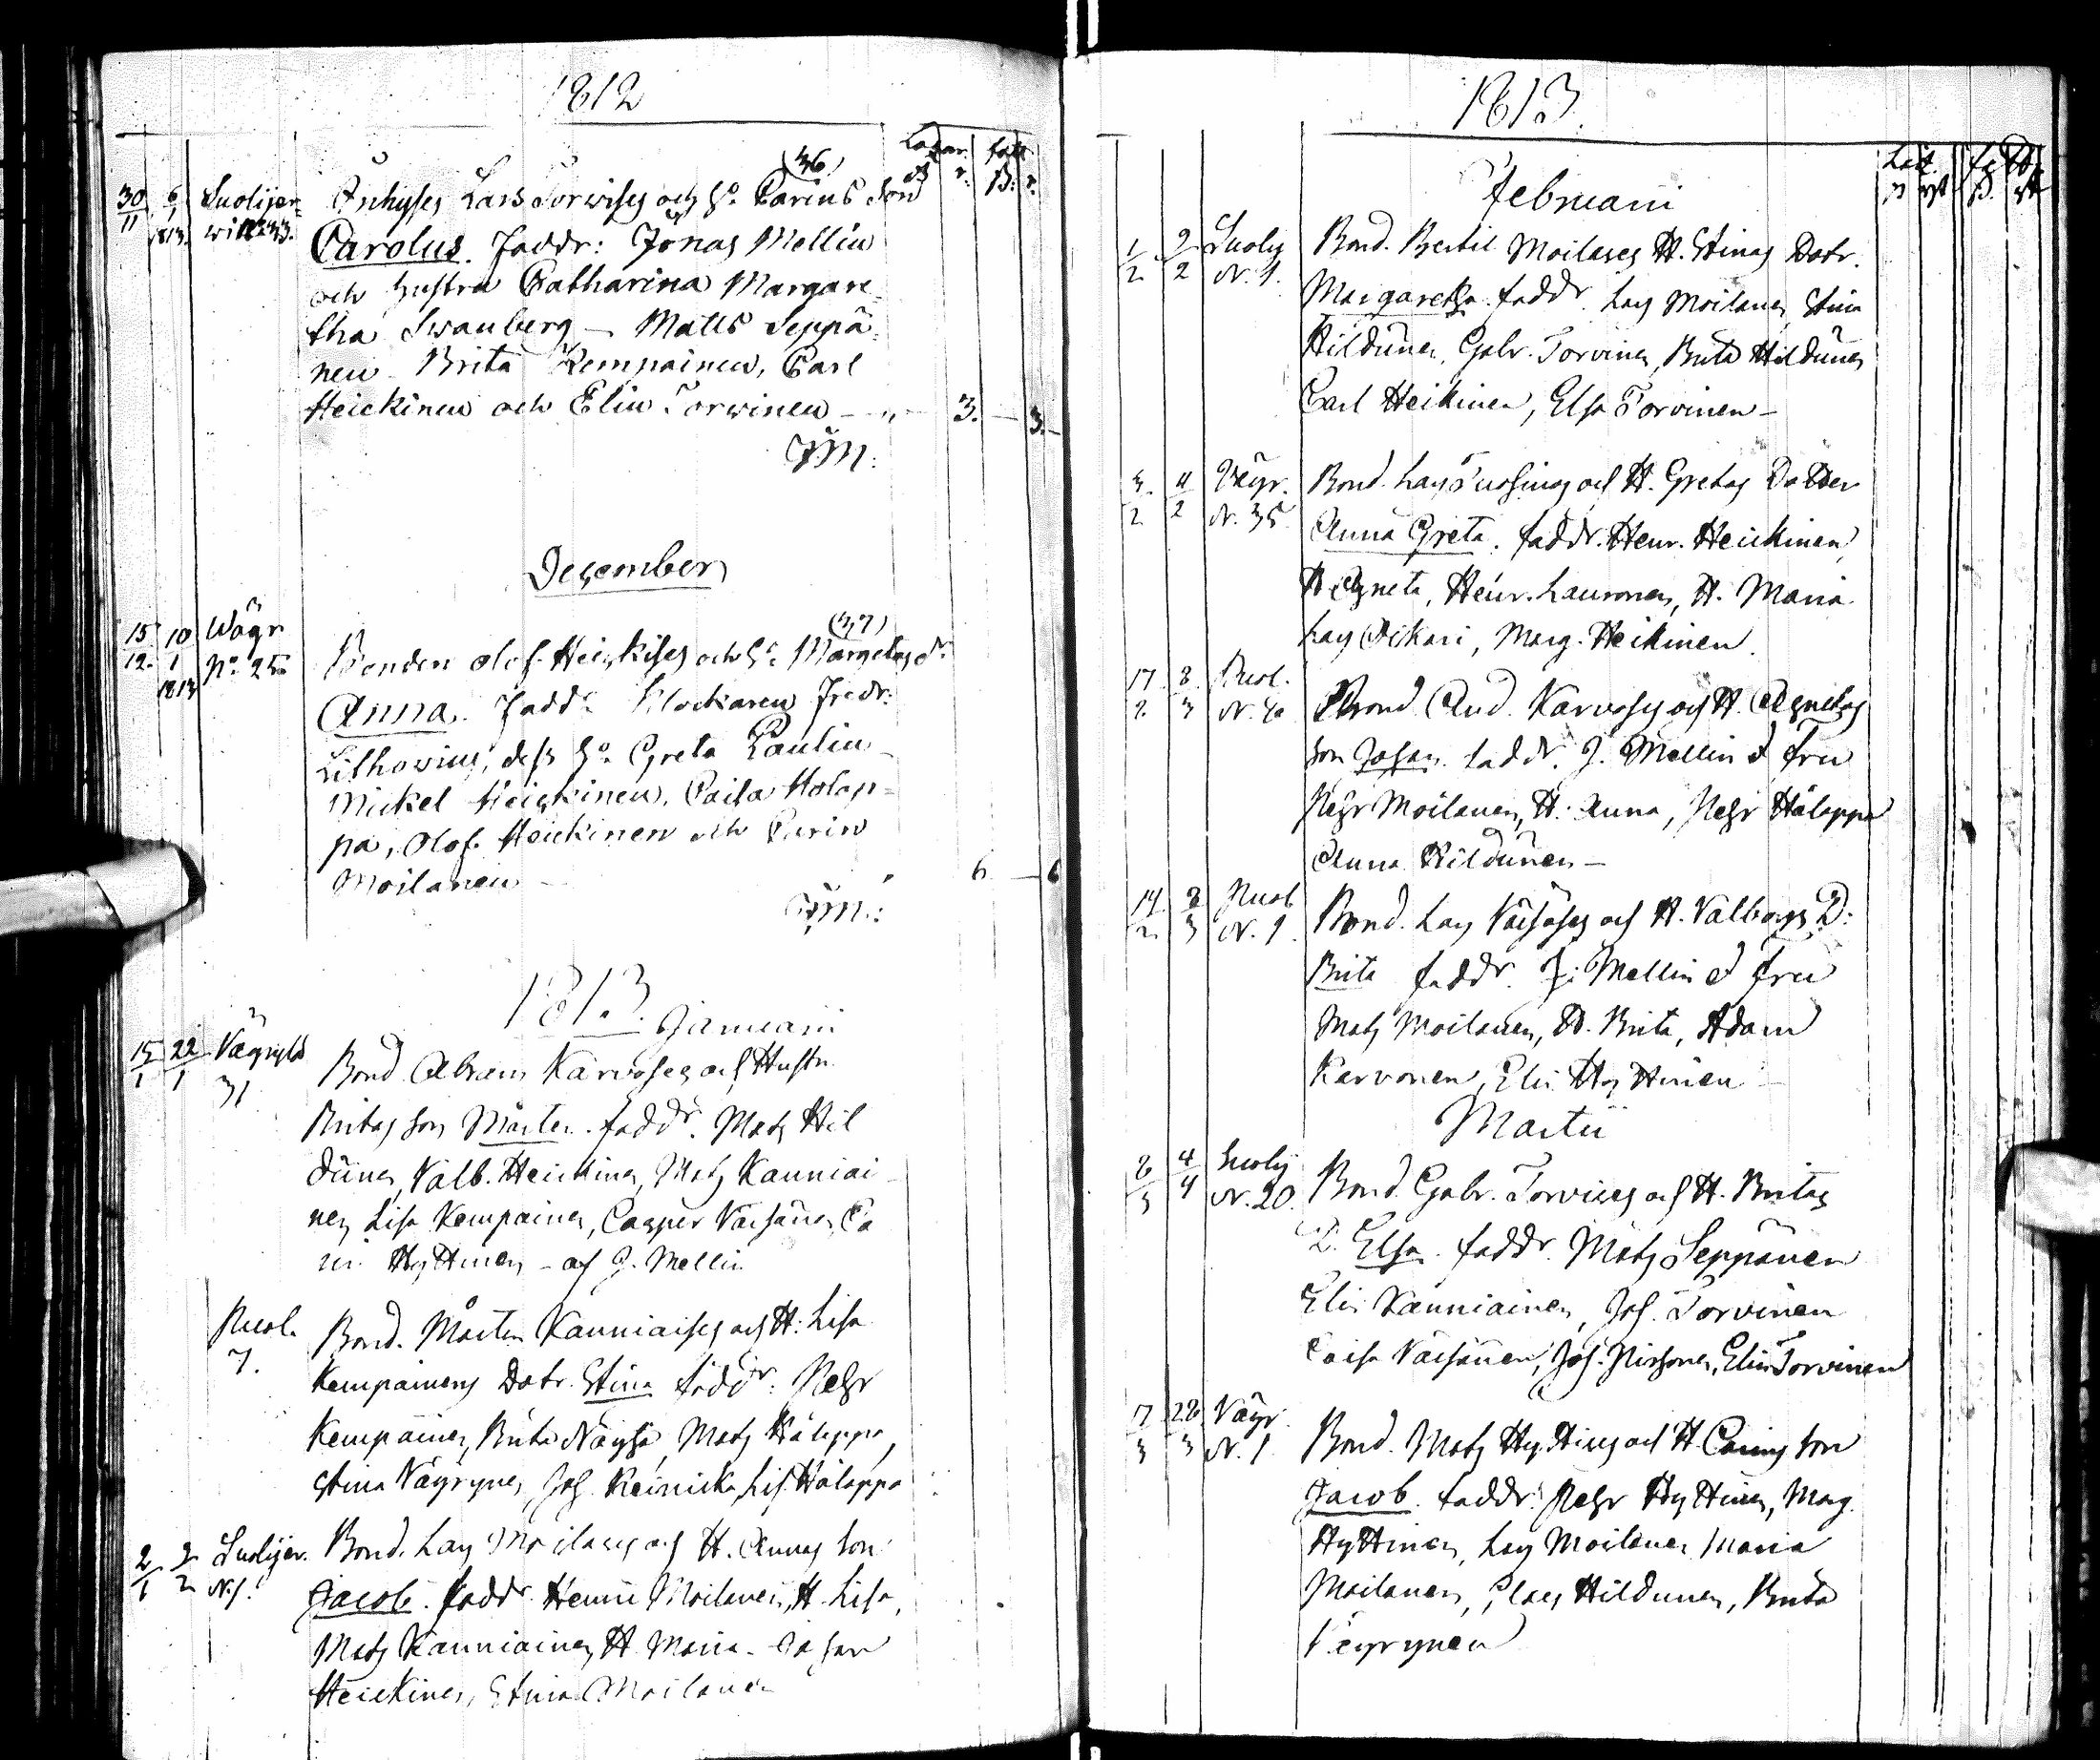 1812
36)
30/11 6/1 1813 Suolijer- Inhyses Lars Torwises och H:s Carins Son
Carolus. Faddr: Jonas Mellin
och hustru Catharina Margare-
tha Swanberg – Matts Seppä-
nen Brita Kempainen, Carl
Heickinen och Elin Torwinen – „ – 3. – 3. –
JM:
December
(37)
15/12 10/1 1813 Wäyr N:o 25 Bonden Olof Heickises och H:s Margetas dr
Anna. Fadd: Klockaren Fredr:
Lithovius, dess H:u Greta Paulin
Mickel Heickinen, Caisa Holap-
pa, Olof Heickinen och Carin
Moilanen – 6 – 6
JM:
1813. Januarii
15/1 22/1 Väyryld 31 Bond Abram Karvoses och Hustr
Britas son Mårten. faddr. Mats Hil
dünen, Valb. Heickinen, Mats Kauniai
nen Lisa Kempainen, Casper Väisänen Ca
rin Hyttinen – af J. Mellin
Puol. 7. Bond. Mårten Kauniaises och H: Lisa
Kempainens Dotr. Stina faddr: Pehr
Kempainen, Brita Näyhä, Mats Hälappa,
Stina Väyrynen, Joh. Reinicka, Lis. Hälappa
2/1 2/2 Suolijer. N. 1. Bond. Lars Moilases och H. Annas son
Jacob. Faddr Henric Moilanen, H. Lisa,
Mats Kauniainen H. Maria – Johan
Heickinen, Stina Moilanen
1813.
Februarii
1/2 2/2 Suolij N. 1. Bond. Bertil Moilases H. Stinas Dotr.
Margaretha. faddr. Lars Moilanen, Stina
Hildünen, Gabr. Torvinen, Brita Hildünen
Carl Heikinen, Elsa Torvinen –
3/2 4/2 Väyr. N. 35 Bond. Lars och H. Gretas Dotter
Anna Greta. faddr. Henr. Heickinen,
H. Agneta, Henr. Lauronen, H. Maria
Lars Pikari, Marg. Heikinen.
17/2 8/3 Puol. Bond. And. Karvoses och H. Agnetas
son Johan. faddr. J. Mellin & fru
Pehr Moilanen, H. Anna, Pehr Hälappa
Anna Hildünen –
14/2 8/3 Puol N. 1. Bond. Lars Väisäses och H. Valborgs D:
Brita faddr. J: Mellin & fru
Mats Moilanen, H. Brita, Adam
Karvonen, Elin Hyttinen –
Martii
8/3 4/4 Suolij N. 20. Bond. Gabr. Torvises och H. Britas
D. Elsa. faddr. Mats Seppänen
Elin Kauniainen, Joh. Torvinen
Caisa Väisänen, Joh. Pirhonen, Elin Torvinen
17/3 28/3 Väyr. N. 1. Bond. Mats Hyttises och H. Carins son
Jacob. faddr. Pehr Hyttinen, Marg.
Hyttinen, Lars Moilanen Maria
Moilanen, Claes Hildunen, Brita
Väyrynen